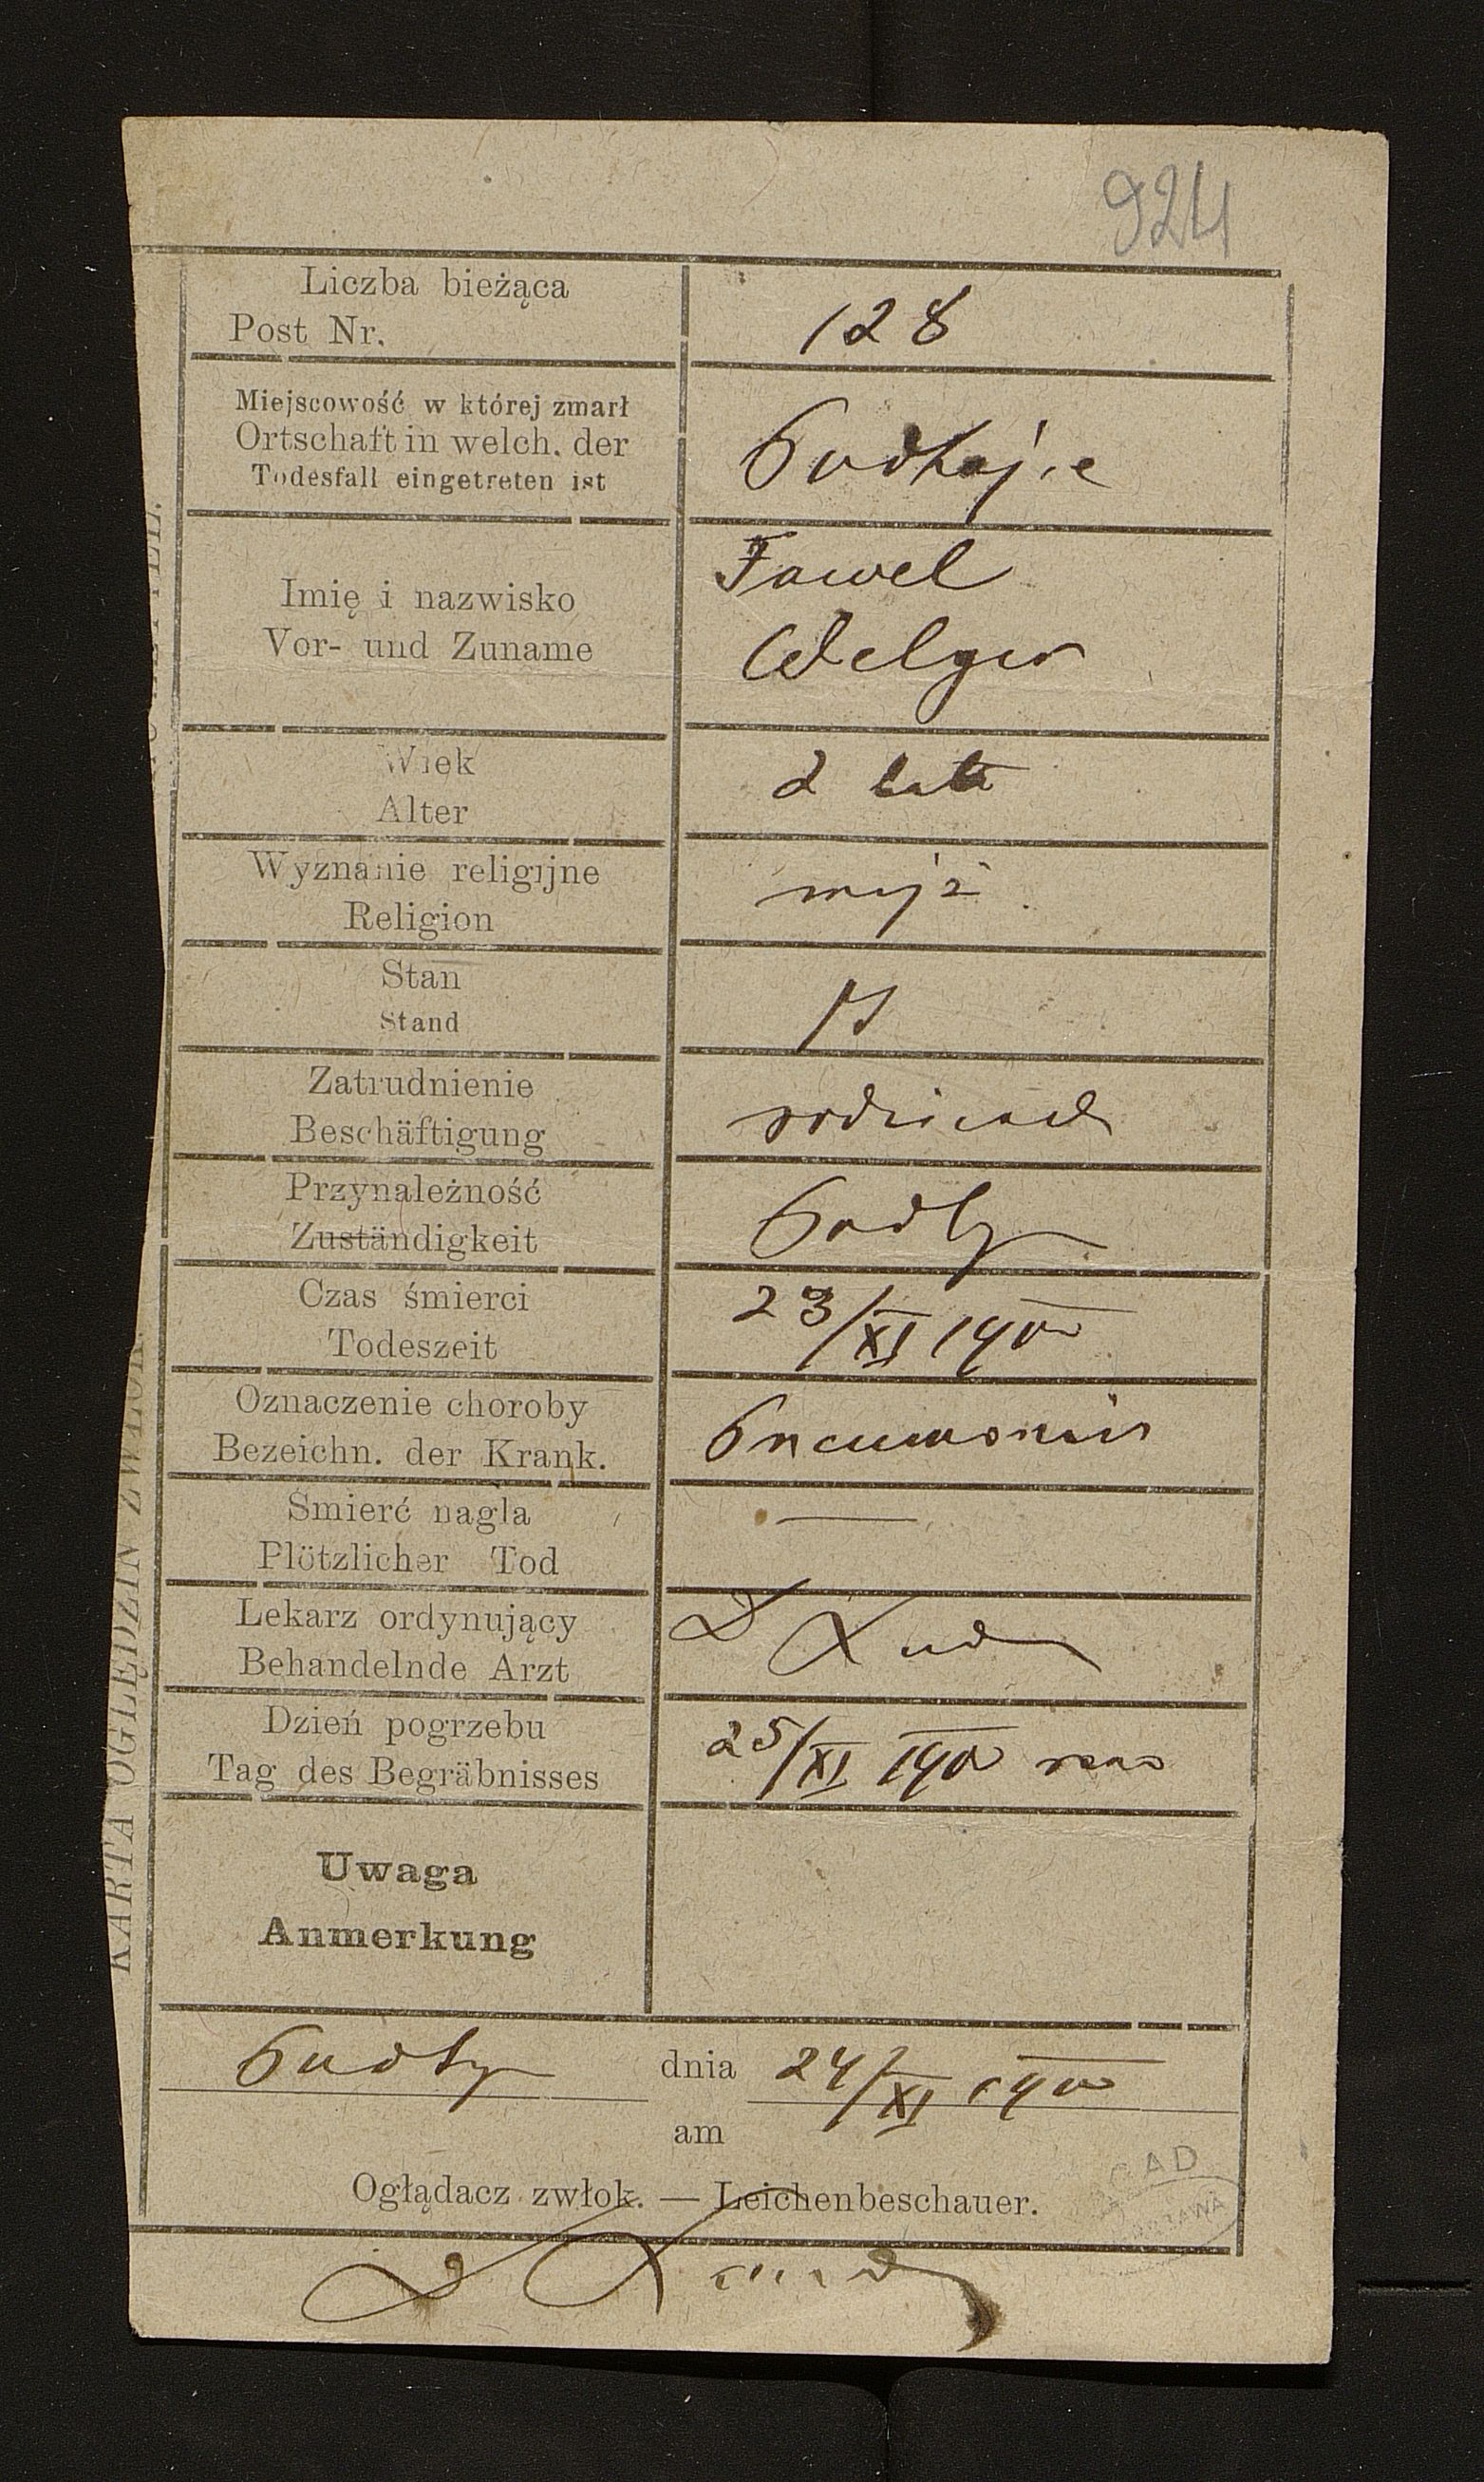 924
Liczba bieżąca
Post Nr.
128
Miejscowość w której zmarł
Ortschaft in welch. der
Todesfall eingetreten ist
Podhajce
Imię i nazwisko
Vor- und Zuname
Fawel
Welger
Wiek
Alter
2 lata
Wyznanie religijne
Religion
mojż
Stan
Stand
Zatrudnienie
Beschäftigung
Przynależność
Zuständigkeit
Podh
Czas śmierci
Todeszeit
23/XI 1900
Oznaczenie choroby
Bezeichn. der Krank.
Pneumonia
Śmierć nagła
Plötzlicher Tod
—
Lekarz ordynujący
Behandelnde Arzt
D
Dzień pogrzebu
Tag des Begräbnisses
25/XI 1900 rano
Uwaga
Anmerkung
Podh
dnia
24/XI 1900
am
Oglądacz zwłok. — Leichenbeschauer.
AGAD
WARSZAWA
KARTA OGLĘDZIN ZWŁOK